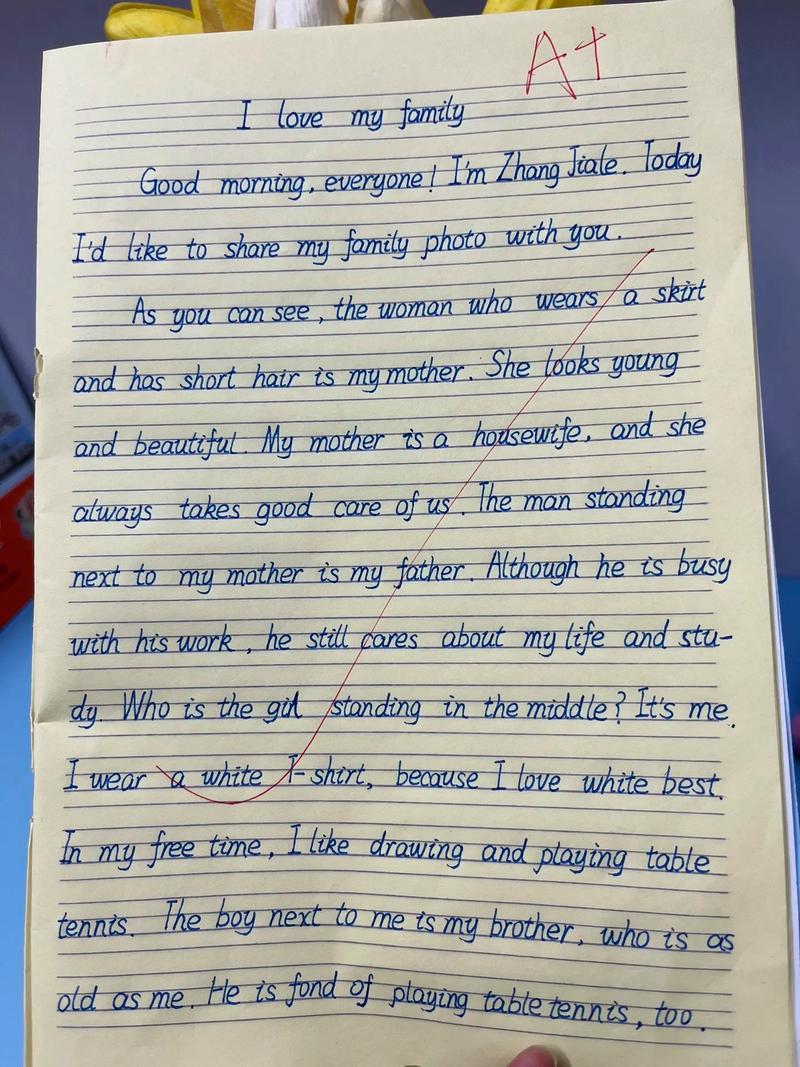 A+
I love my family
Good morning, everyone! I'm Zhang Jiale. Today
I'd like to share my family photo with you.
As you can see, the woman who wears a skirt
and has short hair is my mother. She looks young
and beautiful. My mother is a housewife, and she
always takes good care of us. The man standing
next to my mother is my father. Although he is busy
with his work, he still cares about my life and stu-
dy. Who is the girl standing in the middle? It's me.
I wear a white T-shirt, because I love white best.
In my free time, I like drawing and playing table
tennis. The boy next to me is my brother, who is as
old as me. He is fond of playing table tennis, too.